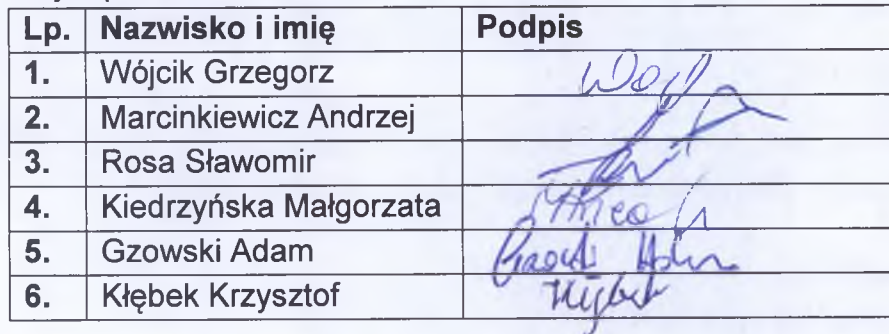 Lp. Nazwisko i imię Podpis
1. Wójcik Grzegorz
2. Marcinkiewicz Andrzej
3. Rosa Sławomir
4. Kiedrzyńska Małgorzata
5. Gzowski Adam
6. Kłębek Krzysztof